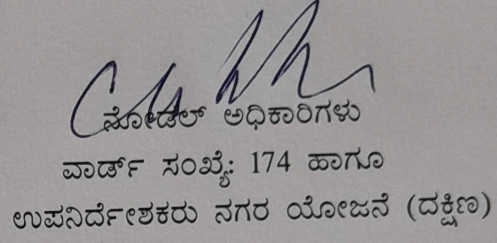 ನೋಡಲ್ ಅಧಿಕಾರಿಗಳು
ವಾರ್ಡ್ ಸಂಖ್ಯೆ: 174 ಹಾಗೂ
ಉಪನಿರ್ದೇಶಕರು ನಗರ ಯೋಜನೆ (ದಕ್ಷಿಣ)